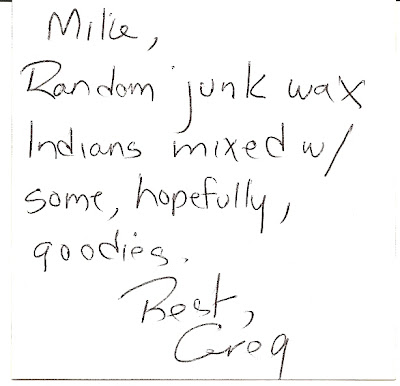 Mike,
Random junk wax
Indians mixed w/
some, hopefully,
goodies.
Best,
Greg